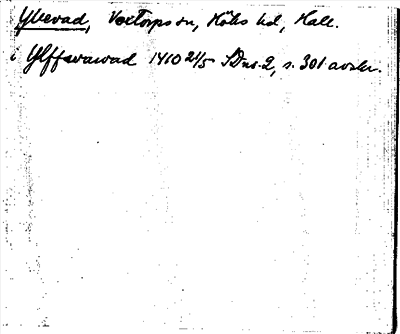 Yllevad, Voxtorps sn, Höks hd, Hall.
i Ylffwawad 1410 21/5 SDns. 2, s. 301 avskr.